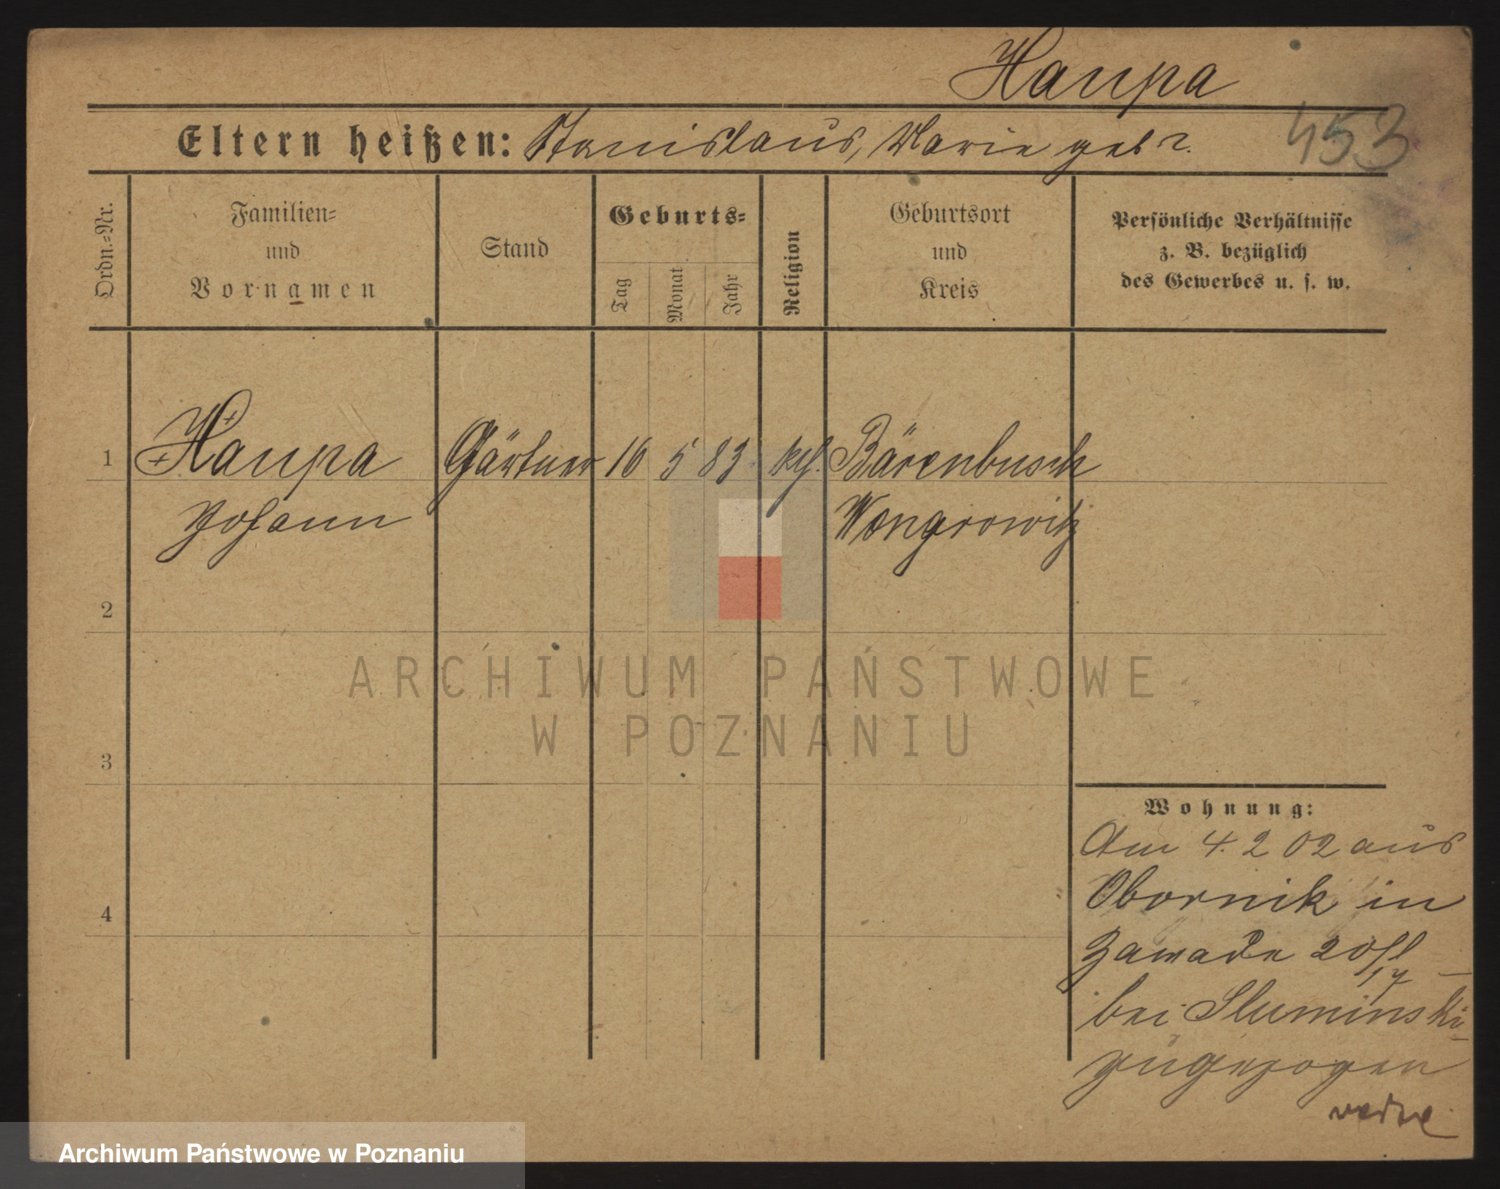 Haupa
453
Eltern heißen: Stanislaus, Marie geb ?.
Ordn.=Nr.
Familien=
und
Vornamen
Stand
Geburts=
Tag
Monat
Jahr
Religion
Geburtsort
und
Kreis
Persönliche Verhältnisse
z. B. bezüglich
des Gewerbes u. s. w.
1 Haupa Gärtner 16 5 83 kth. Bärenbusch
Johann Wongrowitz
2
ARCHIWUM PAŃSTWOWE
W POZNANIU
3
Wohnung:
Am 4. 2 02 aus
Obornik in
4
Zawade
bei Sluminski
zugezogen
Archiwum Państwowe w Poznaniu